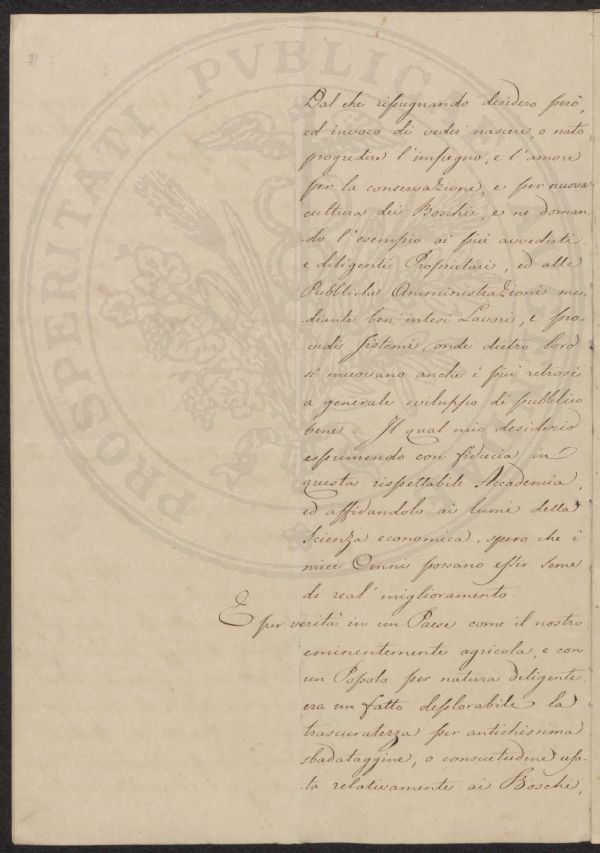 Dal che ripugnando desidero però,
ed invoco di veder nascere, o nato
progredire l'impegno, e l'amore
per la conservazione, e per nuova
cultura dei Boschi, e ne doman-
do l'esempio ai più avveduti
e diligenti Proprietari, ed alle
Pubbliche Amministrazioni me-
diante ben' intesi Lavori, e pro-
vedi sistemi, onde dietro loro
si muovano anche i più retrosi
a generale sviluppo di pubblico
bene. Il qual mio desiderio
esprimendo con fiducia in
questa rispettabile Accademia,
ed affidandolo ai lumi della
Scienza economica, spero che i
miei Cenni possano esser seme
di real' miglioramento
E per verità in un Paese come il nostro
eminentemente agricola, e con
un Popolo per natura diligente,
era un fatto deplorabile la
trascuratezza per antichissima
sbadataggine, o consuetudine usa-
ta relativamente ai Boschi,
PROSPERITATI PVBLICAE